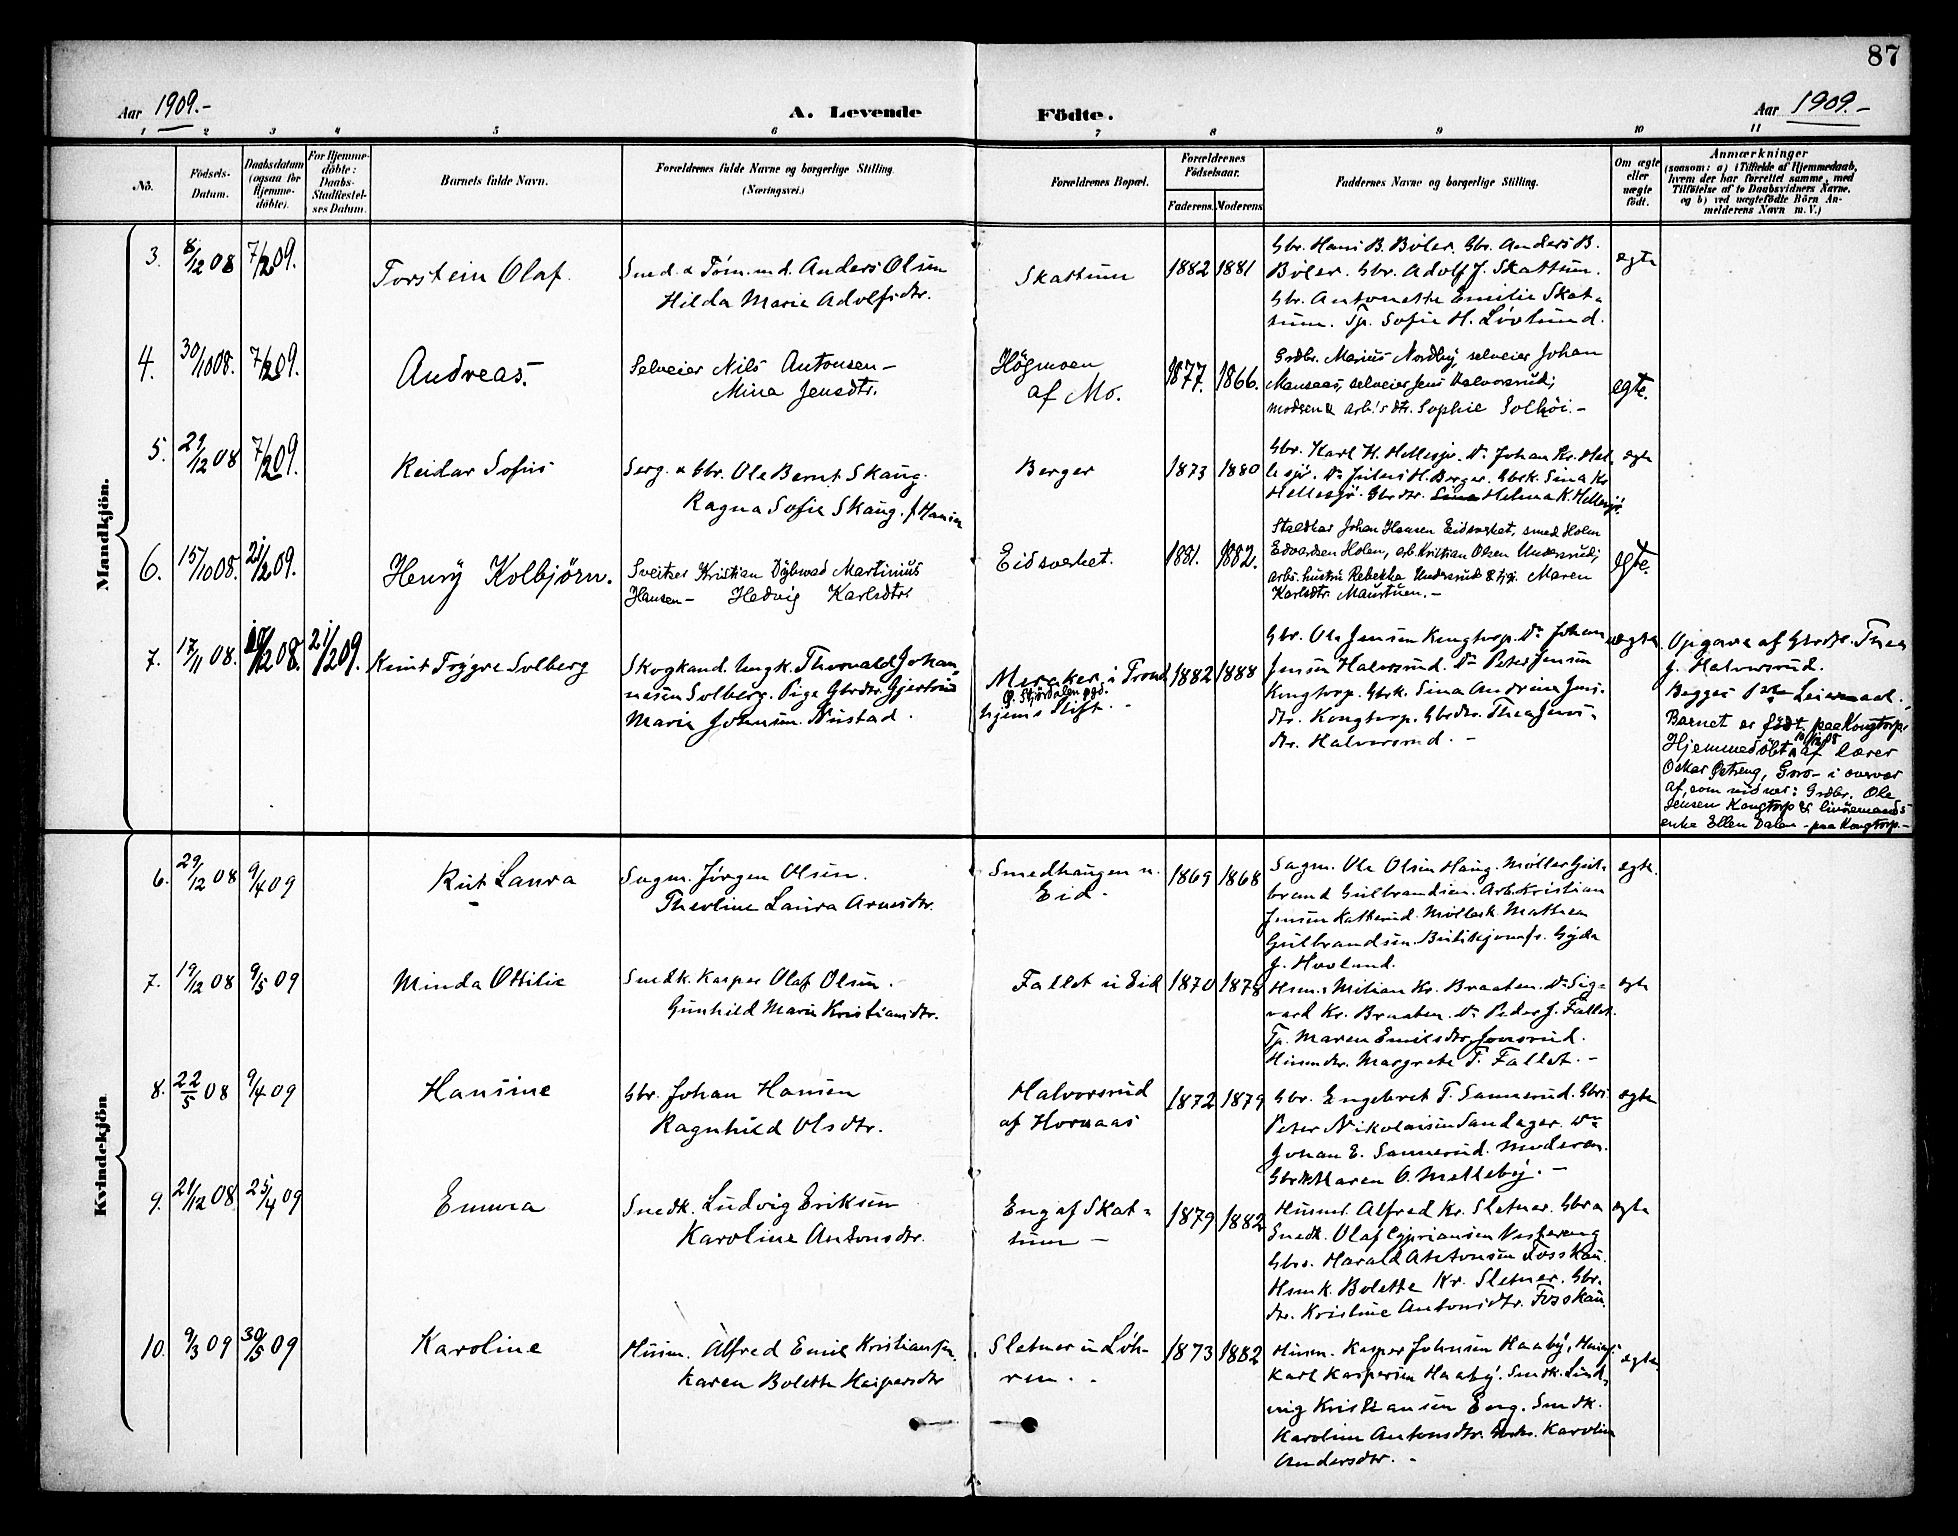 87
Aar 1909.- A. Levende Födte. Aar 1909.-
1 2 3 4 5 6 7 8 9 10 11
No.
Födsels-
Datum.
Daabsdatum
(ogsaa for
Hjemme-
döbte).
For Hjemme-
döbte:
Daabs-
Stadfæstel-
ses Datum.
Barnets fulde Navn.
Forældrenes fulde Navne og borgerlige Stilling.
(Næringsvei.)
Forældrenes Bopæl.
Forældrenes
Födselsaar.
Faderens. Moderens.
Faddernes Navne og borgerlige Stilling.
Om ægte
eller
uægte
födt.
Anmærkninger
(saasom: a) i Tilfælde af Hjemmedaab,
hvem der har forrettet samme, med
Tilföielse af to Daabsvidners Navne,
og b) ved uægtefödte Börn An-
melderens Navn m. V.)
Mandkjön.
3. 8/12 08 7/2 09. Torstein Olaf.
Smed & Tøm.md. Anders Olsen
Hilda Marie Adolfsdtr.
Skattum 1882 1881
Gbr. Hans B. Bøler. Gbr. Anders B.
Bøler. Gbr. Adolf J. Skattum.
Gbr. Antonette Emilie Skat-
tum. Tp. Sofie H. Løvlund.
egte
4. 30/10 08. 7/2 09. Andreas.
Selveier Nils Antonsen -
Mina Jensdtr.
Högmoen
af Mo.
1877. 1866.
Grdbr. Marius Nordby, selveier Johan
Mansaas, selveier Jens Halvorsrud;
moderen & arb.'s dtr. Sophie Solhöi. -
egte.
5. 29/12 08 7/2 09. Reidar Sofus
Serg. & Gbr. Ole Bernt Skaug.
Ragna Sofie Skaug. f. Hansen
Berger 1873 1880
Gbr. Karl H. Hellesjø. Do Johan Kr. Hel-
lesjø. Do Julius H. Berger. Gbrk. Sina Kr
Hellesjø. Gbrdtr. Sina Helma K. Hellesjø.
egte
6. 15/10 08. 21/2 09. Henry Kolbjørn.
Sveitser Kristian Dybwad Martinius
Hansen - Hedvig Karlsdtr
Eidsverket. 1881. 1882.
Staldkar Johan Hansen Eidsverket, smed Holm
Edvardsen Holen, arb. Kristian Olsen Undersrud;
arbs. hustru Rebekka Undersrud & tj.pi. Maren
Karlsdtr. Maurtuen. -
egte.
7. 17/11 08. 10/12 08. 21/2 09. Knut Trygve Solberg
Skogkand. Ungk. Thorvald Johan-
nesen Solberg. Pige Gbrdtr. Gjertrud
Marie Johnsen Nustad.
Meraker i Trond
Ø. Stjørdalen pgd.
hjems Stift. -
1882 1888
Gbr. Ole Jensen Kongtorp. Do Johan
Jensen Halvorsrud. Do Peter Jensen
Kongtorp. Gbrk. Sina Andrine Jens-
dtr. Kongtorp. Gbrdtr. Thea Jens-
dtr. Halvorsrud. -
uegte
Opgave af Gbrdtr. Thea
J. Halvorsrud.
Begges 1ste Leiermaal.
Barnet er födt paa Kongtorp.
Hjemmedöbt 10/12 08 af lærer
Oskar Östreng, Gros- i overvær
af, som vidner: Grdbr. Ole
Jensen Kongtorp & lindemands
enke Ellen Dalen - paa Kongtorp. -
Kvindekjön
6. 29/12 08 9/4 09 Rut Laura
Sagm. Jørgen Olsen.
Theoline Laura Arnesdtr.
Smedhaugen u.
Eid.
1869 1868
Sagm. Ole Olsen Haug. Møller Gul-
brand Gulbrandsen. Arb. Kristian
Jensen Katterud. Møllerk. Mathea
Gulbrandsen. Butikjomfr. Gyda
J. Hovland.
egte.
7. 19/12 08 9/5 09 Minda Ottilie
Smedk. Kasper Olaf Olsen.
Gunhild Marie Kristiansdtr.
Fallet u Eid 1870 1878
Hsm.s Milian Kr. Braaten. Do Sig-
vard Kr. Braaten. Do Peder J. Fallet.
Tp. Maren Emilsdtr. Jonsrud.
Husmdtr. Margrete T. Fallet. -
egte
8. 22/5 08 9/4 09 Hansine
Gbr. Johan Hansen
Ragnhild Olsdtr.
Halvorsrud
af Hornaas
1872 1879
Gbr. Engebret T. Sannerud. Gbrs
Peter Nikolaisen Sandager. Do
Johan E. Sannerud. Moderen.
Gbrdtr. Maren O. Melleby. -
egte
9. 21/12 08 25/4 09 Emma
Smedk. Ludvig Eriksen
Karoline Antonsdtr.
Eng af Skat-
tum -
1879 1882
Husm. Alfred Kr. Sletner. Gbr a
Smedk. Olaf Cypriansen Vestereng
Gbrs. Harald Antonsen Fosskau.
Hsmk. Bolette Kr. Sletner. Gbr.
dtr. Kristine Antonsdtr. Fosskau.
egte
10. 9/3 09 30/5 09 Karoline
Husm. Alfred Emil Kristiansen.
Karen Bolette Kaspersdtr
Sletner u Løh-
ren.
1873 1882
Husm. Kasper Johnsen Haaby, Husms.
Karl Kaspersen Haaby. Smedk. Lud-
vig Kristiansen Eng. Smedk.
Karoline Antonsdtr. Karoline
Andersdtr. -
egte.